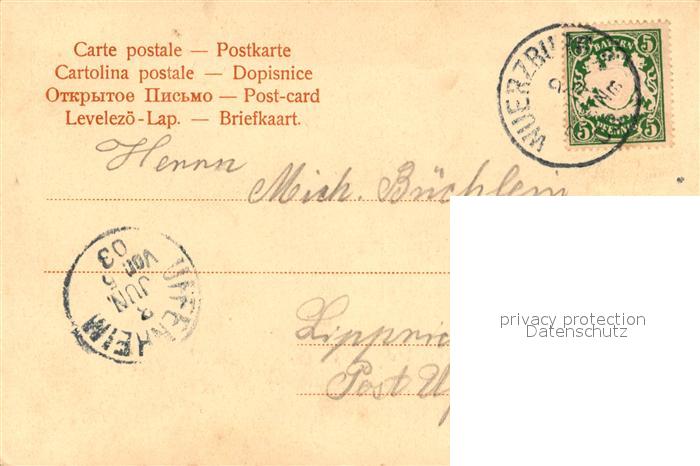 Carte postale — Postkarte
Cartolina postale — Dopisnice
Открытое Письмо — Post-card
Levelező-Lap. — Briefkaart.
WUERZBU
BAYERN
5 5
5 PFENNIG 5
Herrn
Mich. Büchlein
UFFENHEIM
8
JUN.
Vor. 5
03
Lippri
Post U
privacy protection
Datenschutz